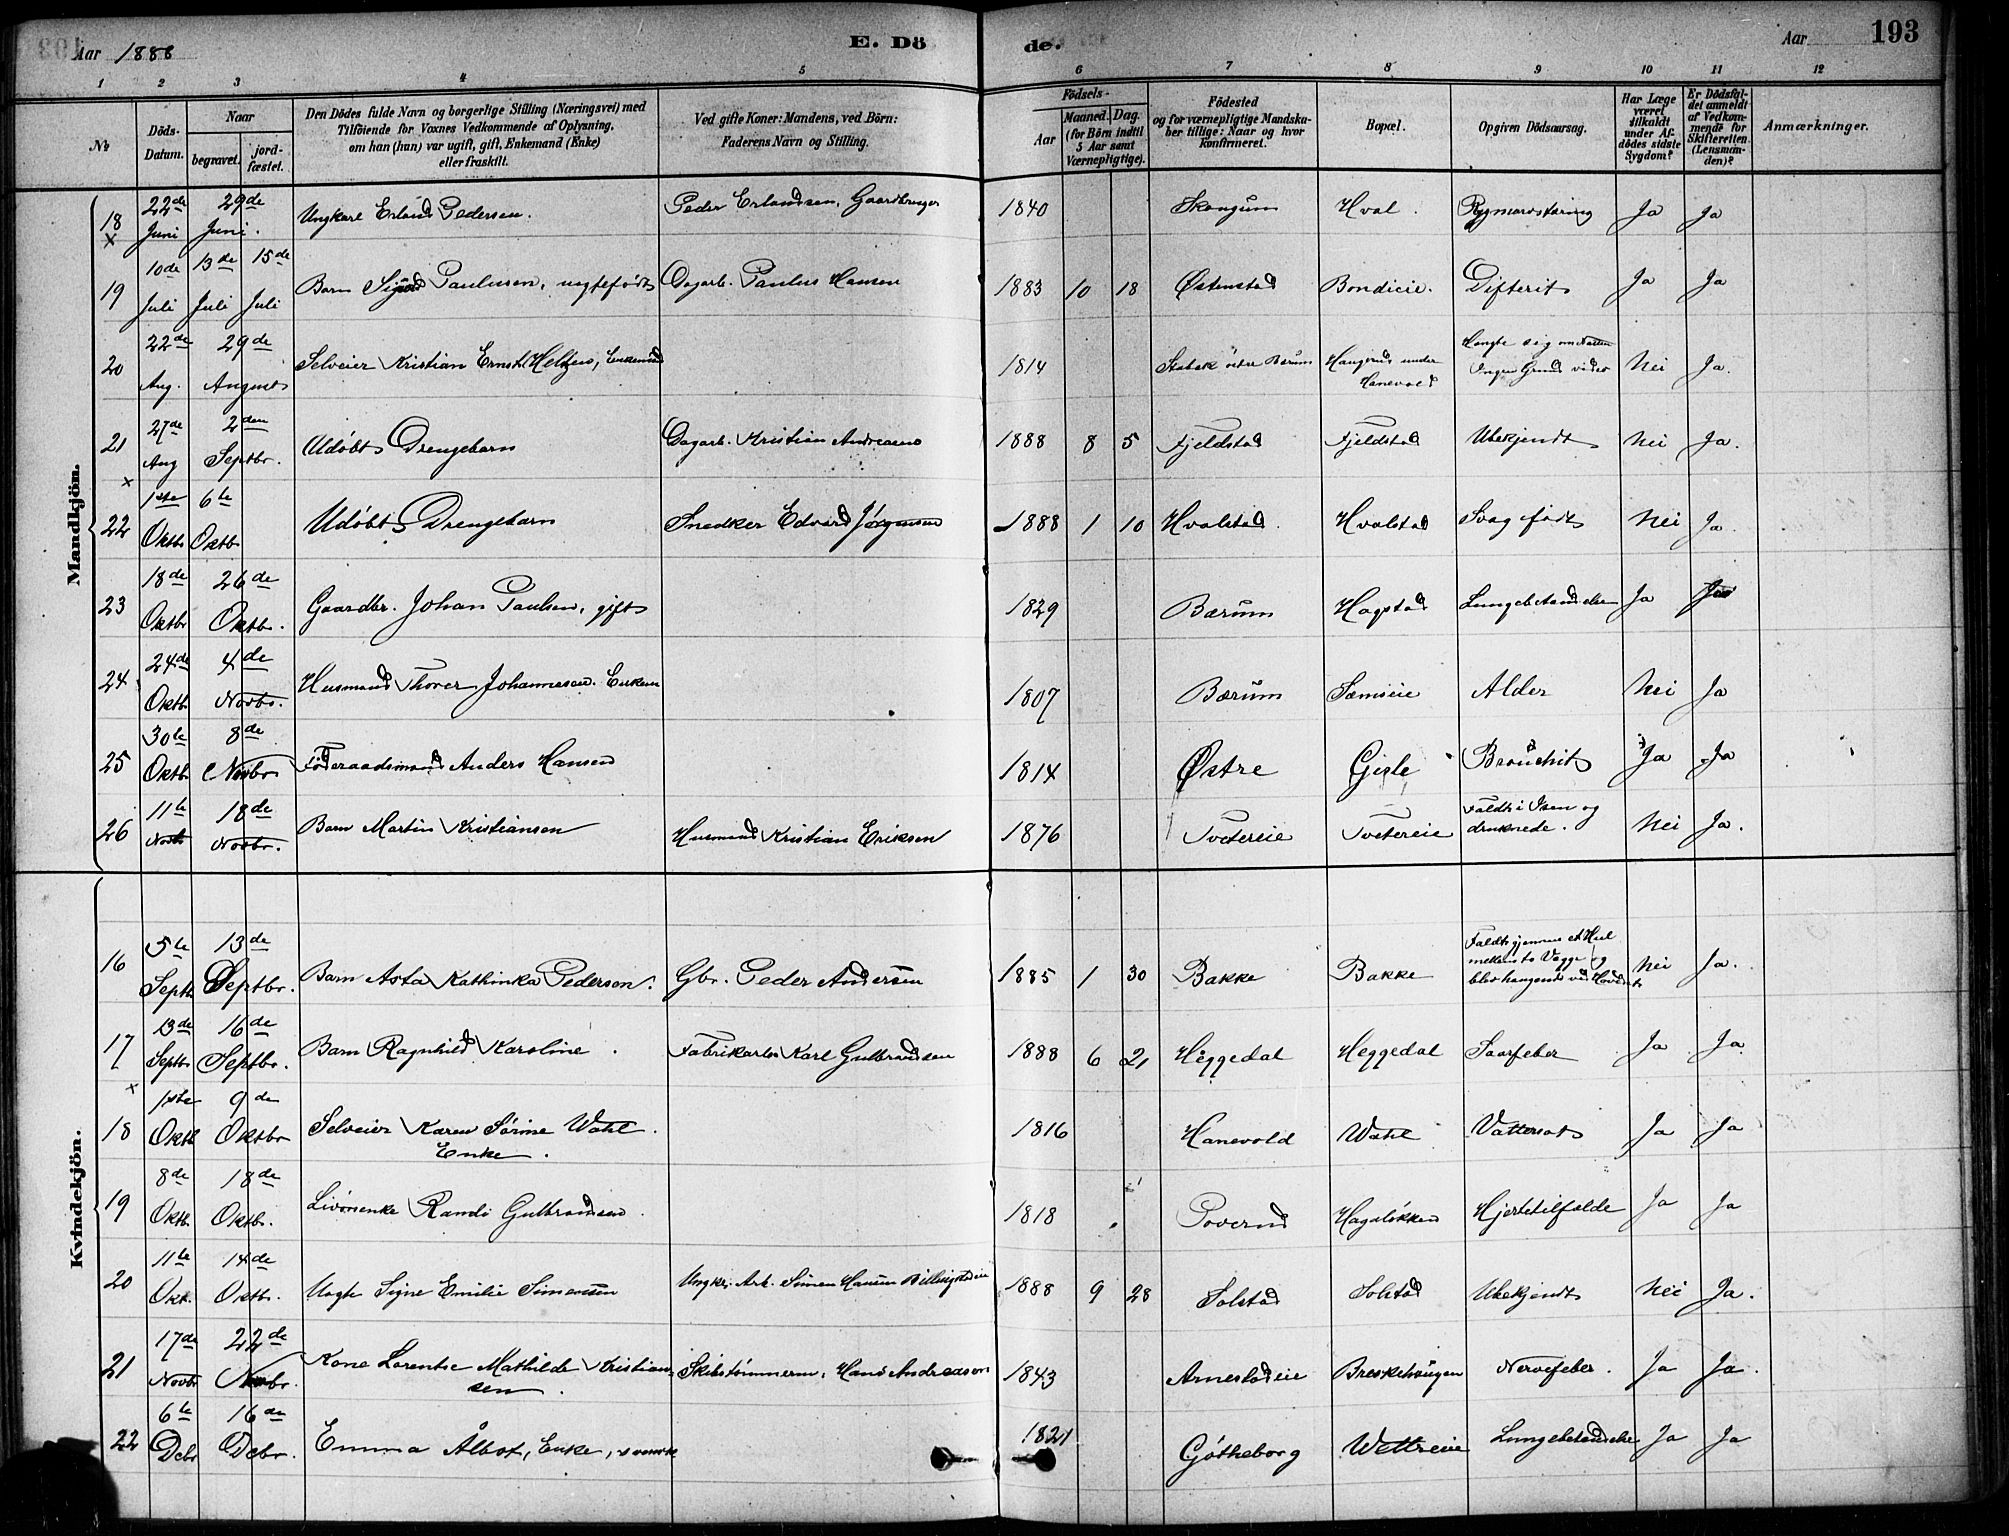 Aar 1888
E. Dö
de.
Aar
193
1 2 3 4 5 6 7 8 9 10 11 12
No
Döds-Datum.
Naar
begravet.
jord-fæstet.
Den Dödes fulde Navn og borgerlige Stilling (Næringsvei) med
Tilföiende for Voxnes Vedkommende af Oplysning,
om han (hun) var ugift, gift, Enkemand (Enke)
eller fraskilt.
Ved gifte Koner: Mandens, ved Börn:
Faderens Navn og Stilling.
Födsels-
Aar
Maaned. Dag.
(for Börn indtil
5 Aar samt
Værnepligtige).
Födested
og for værnepligtige Mandska-
ber tillige: Naar og hvor
konfirmeret.
Bopæl.
Opgiven Dödsaarsag.
Har Læge
været
tilkaldt
under Af-
dödes sidste
Sygdom?
Er Dödsfal-
det anmeldt
af Vedkom-
mende for
Skifteretten
(Lensman-
den)?
Anmærkninger.
Mandkjön.
18 22de Juni 29de Juni. Ungkarl Erland Pedersen. Peder Erlandsen, Gaardbruger 1840 Skougum Hval. Rygmarvstæring Ja Ja
19 10de Juli 13de Juli 15de Juli Barn Sigurd Paulusen, uægtefödt Dagarb. Paulus Hansen 1883 10 18 Østenstad Bondieie. Difterit Ja Ja
20 22de Aug. 29de August Selveier Kristian Ernst Heltzen, Enkemand 1814 Stabæk østre Bærum Haugerud under Hanevold Hængte sig om Natten Ingen Grund vides Nei Ja.
21 27de Aug 2den Septbr. Udöbt Drengebarn Dagarb. Kristian Andreasen 1888 8 5 Fjeldstad Fjeldstad Ubekjendt Nei Ja.
22 1ste Oktb 6te Oktb Udöbt Drengebarn Snedker Edvard Jørgensen 1888 1 10 Hvalstad. Hvalstad Svag födt Nei Ja.
23 18de Oktbr 26de Oktbr. Gaardbr. Johan Paulsen, gift 1829 Bærum Hogstad Lungebetændelse Ja Ja
24 24de Oktb. 4de Novbr. Husmand Thorer Johannesen. Enkem 1807 Bærum Semseie Alder Nei Ja
25 30te Oktb. 8de Novbr Föderaadsmand Anders Hansen 1814 Østre Gjisle Bronchit Ja Ja
26 11te Novb 18de Novbr. Barn Martin Kristiansen Husmand Kristian Eriksen 1876 Tvetereie Tvetereie Faldt i Isen og druknede. Nei Ja.
Kvindekjön.
16 5te Septb 13de Septbr. Barn Asta Kathinka Pedersen. Gbr. Peder Andersen 1885 1 30 Bakke Bakke Faldt gjennem et Hul mellem to Vægge og blev hængende ved Hovedet Nei Ja.
17 13de Septb 16de Septbr. Barn Ragnhild Karoline. Fabrikarb. Karl Gulbrandsen 1888 6 21 Heggedal Heggedal Saarfeber Ja Ja
18 1ste Oktb 9de Oktbr Selveier Karen Sörine Wahl. Enke. 1816 Hanevold Wahl Vattersot Ja Ja
19 8de Oktb. 18de Oktbr. Livörenke Randi Gulbrandsen. 1818 Poverud Hagalökken Hjertetilfælde Ja Ja
20 11te Okt. 14de Oktbr. Uægte Signe Emilie Simensen Ungk. Arb. Simen Hansen Billingstadeie 1888 9 28 Solstad Solstad Ubekjendt Nei Ja.
21 17de Novbr 22de Novbr. Kone Lorentse Mathilde Kristian-
sen. Skibstømmerm. Hans Andreasen 1843 Arnestadeie Breskehaugen Nervefeber. Ja Ja.
22 6te Debr 16de Debr. Emma Albot, Enke, svensk 1821 Götheborg Wettreeie Lungebetændelse Ja Ja